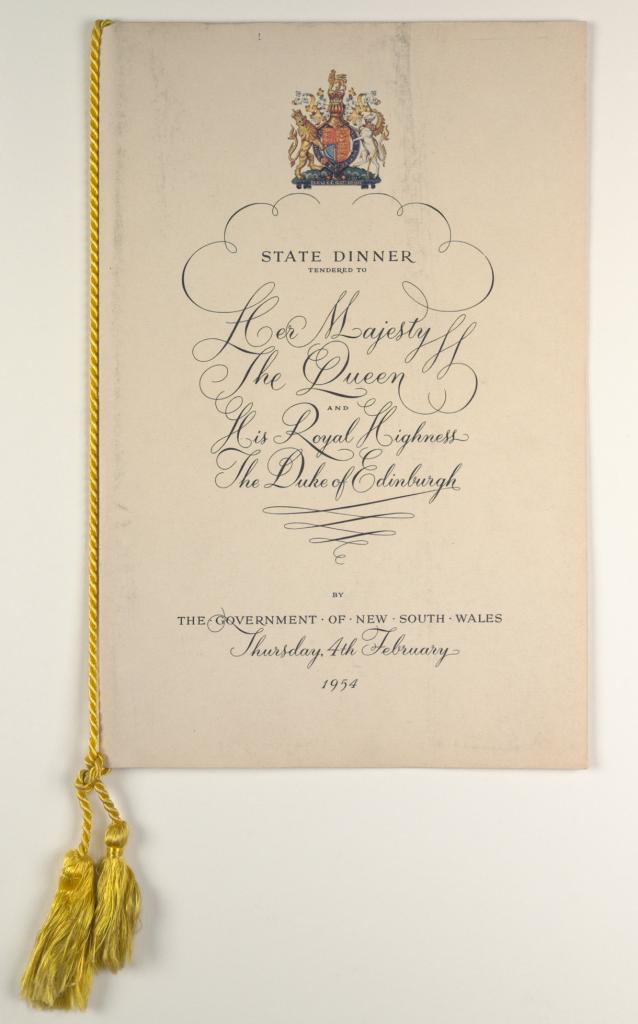 STATE DINNER
TENDERED TO
Her Majesty
The Queen
AND
His Royal Highness
The Duke of Edinburgh
BY
THE · GOVERNMENT · OF · NEW · SOUTH · WALES
Thursday, 4th February
1954